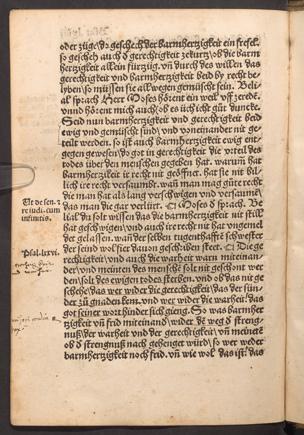 oder züge/do geschech der barmherzigkeit ein frefel.
so geschech auch d̕ gerechtigkeit zekurtz/ob die barm
hertzigkeit allein fürzüg.vn̄ durch des willen das
gerechtigkeit vnd barmherzigkeit beid by recht be
lyben/so müssen sie allwegen gemischt sein. Beli
al sprach Herr Moses hörent ein weil vff zereden.
vnnd hörent mich auch ob es üch icht gůt duncke.
Seid nun barmherzigkeit vnd gerechtigkeit beid
ewig vnd gemischt sind/ vnd voneinander nit ge-
teilt werden. so ist auch barmherzigkeit ewig ent-
gegen gewesen/do got in gerechtigkeit die vrteil des
todes über den menschen gegeben hat. warum̄ hat
barmherzikeit ir recht nit geöffnet. hat sie nit bil
lich ire recht versaumbt. wan̄ man mag güte recht
die man hat als lang verschwigen vnd versaumē
das man die gar verlürt. Moses d̕ sprach. Be
lial du solt wissen das die barmherzigkeit nit still
hat geschwigen/vnd auch ir recht nit hat vngemelt
der gelassen. wan̄ der selben tugent halb zweyer
der seind wol hie dauon geschriben sten. Die ge
rechtigkeit/vnd auch die warheit warn miteinan-
der/vnd meinten des mensche solt nit geschont wer
den/solt des ewigen todes sterben. vnd ob das nit ge
schehe/das wer wider die gerechtigkeit/das der sün-
der zů gnaden kem. vnd wer wider die warheit/ das
got seiner wort hinder sich gieng. So was barmher
tzigkeit vn̄ frid miteinand/ wider dē weg d̕ streng-
nuß/der warheit vnd der gerechtigkeit/vn̄ meinēt
ob d̕ strengnuß nach gehenget würd/so wer weder
barmherzigkeit noch frid. vn̄ wie wol das ist/ das
Psal.lxxvi.